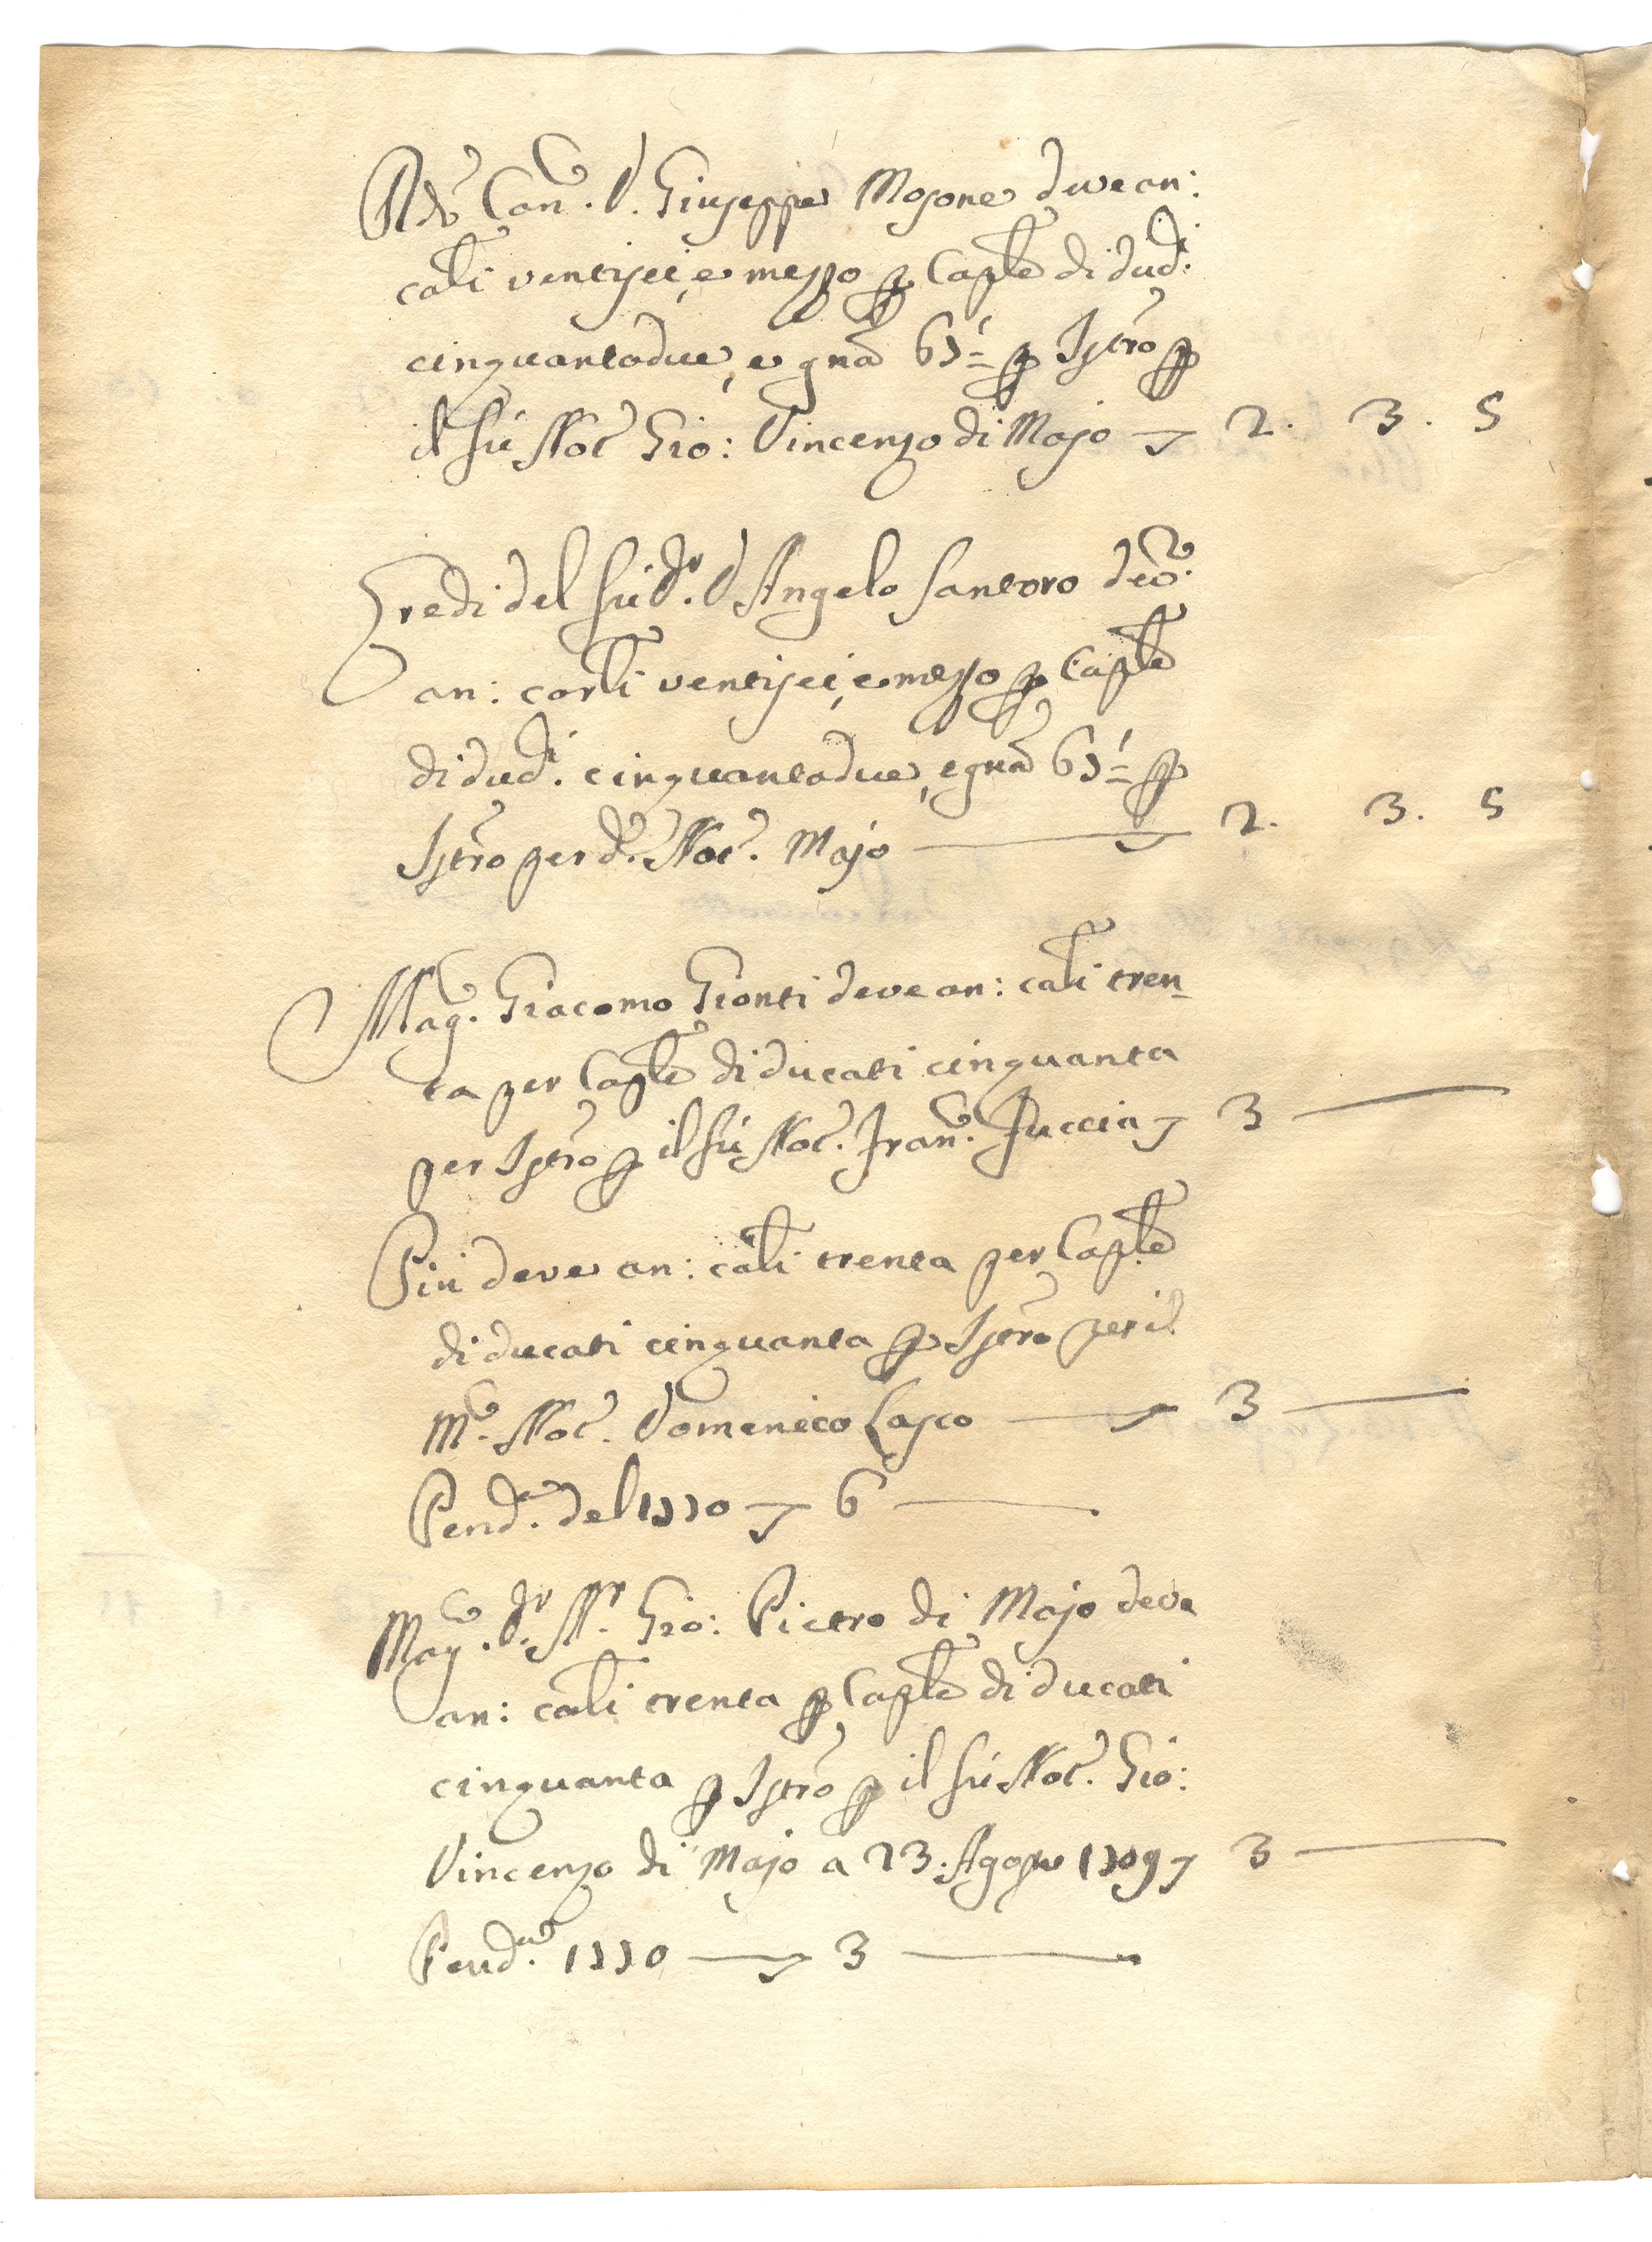 Rdo Can.co D. Giuseppe Mosone deve an:
cãli ventisei, e mezzo p Caple di ducti
cinquantadue, e gña 67 1/2 p Istro p
il fù Not.r Gio: Vincenzo di Majo — 2. 3. 5
Eredi del fù D.r D. Angelo Santoro deo.no
an: carli ventisei, e mezzo p Caple
di ducti cinquantadue, e gña 67 1/2 p
Istro per d.o Not.r Majo — 2. 3. 5
Mag.co Giacomo Gionti deve an: cãli tren-
ta per Caple di ducati cinquanta
per Istro p il fù Not.r Fran.co Juccia — 3 —
Più deve an: cãli trenta per Caple
di ducati cinquanta p Istro per il
M.co Not.r Domenico Lasco — 3 —
Pend.a del 1770 — 6 —
Mag.co D.r N.r Gio: Pietro di Majo deve
an: cãli trenta p Caple di ducati
cinquanta p Istro p il fù Not.r Gio:
Vincenzo di Majo a 23. Agosto 1709 — 3 —
Pend.a 1770 — 3 —